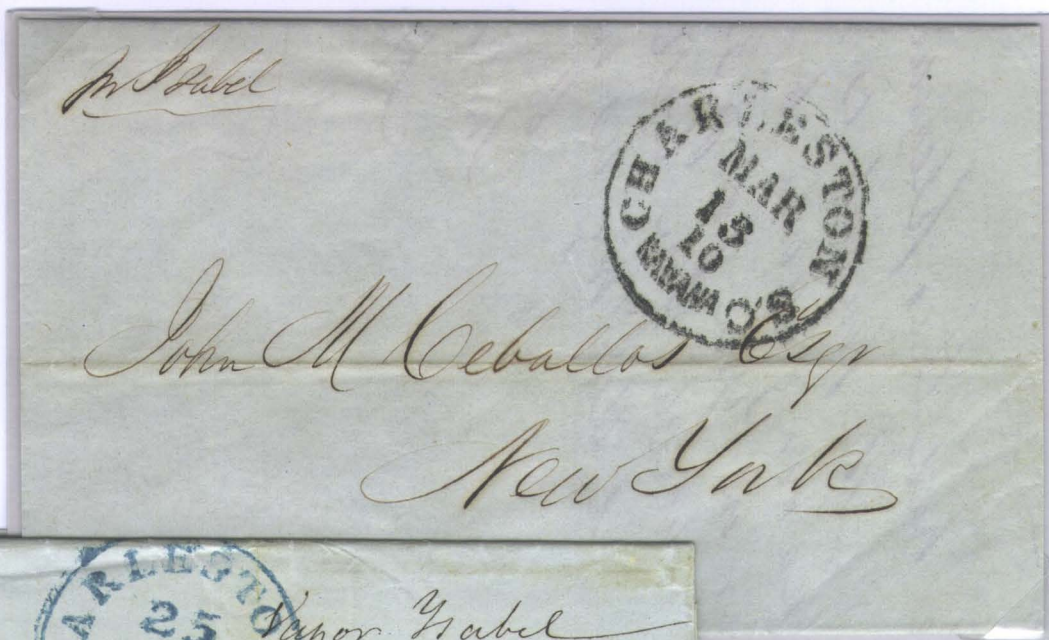 pr Isabel
CHARLESTON S.C.
MAR
13
10
HAVANA
John M Ceballos Esqr
New York
ARLESTO
25
Vapor Isabel